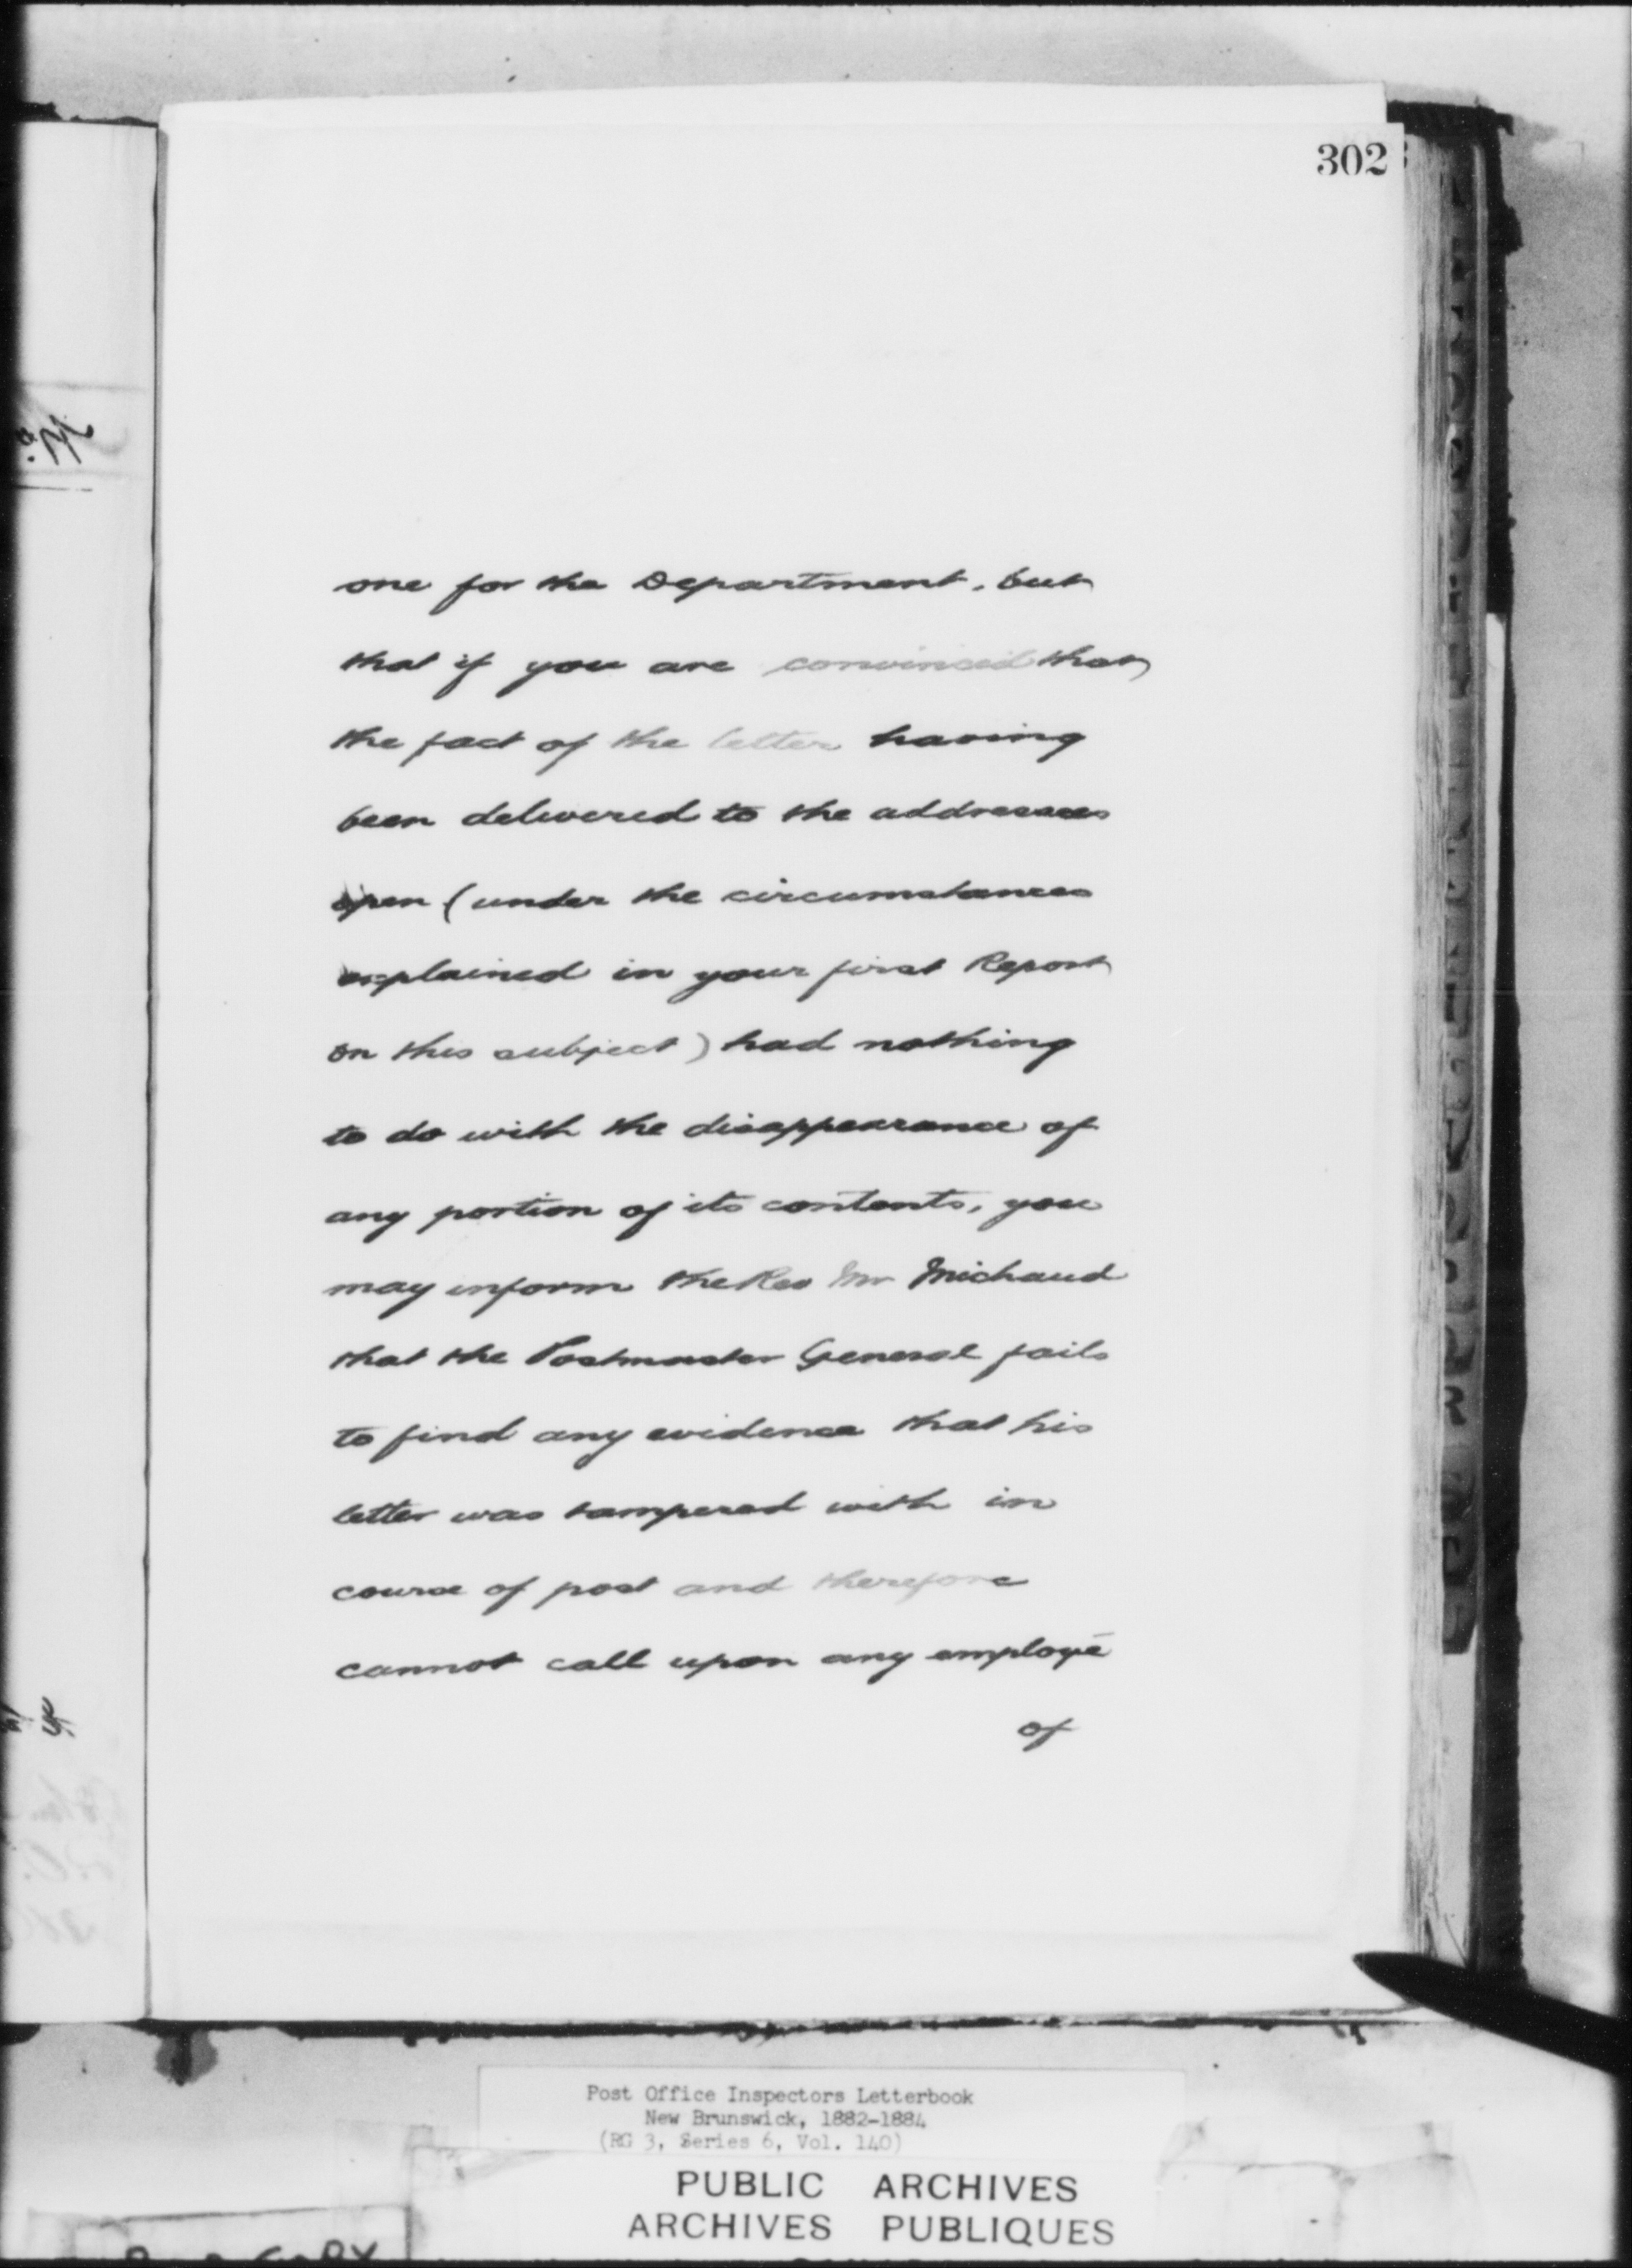 302
one for the Department, but
that if you are convinced that
the fact of the letter having
been delivered to the addressees
open (under the circumstances
explained in your first Report
on this subject) had nothing
to do with the disappearance of
any portion of its contents, you
may inform the Rev Mr Michaud
that the Postmaster General fails
to find any evidence that his
letter was tampered with in
course of post and therefore
cannot call upon any employé
of
Post Office Inspectors Letterbook
New Brunswick, 1882-1884
(RG 3, Series 6, Vol. 140)
PUBLIC ARCHIVES
ARCHIVES PUBLIQUES